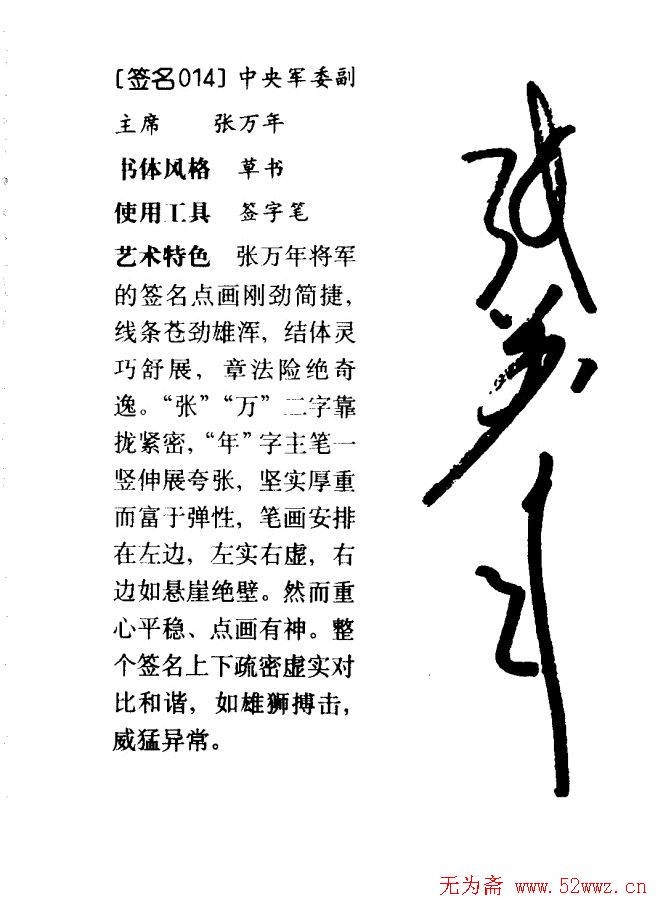 [签名014] 中央军委副
主席 张万年
书体风格 草书
使用工具 签字笔
艺术特色 张万年将军
的签名点画刚劲简捷，
线条苍劲雄浑，结体灵
巧舒展，章法险绝奇
逸。“张”“万”二字靠
拢紧密，“年”字主笔一
竖伸展夸张，坚实厚重
而富于弹性，笔画安排
在左边，左实右虚，右
边如悬崖绝壁。然而重
心平稳、点画有神。整
个签名上下疏密虚实对
比和谐，如雄狮搏击，
威猛异常。
张万年
无为斋 www.52wwz.cn